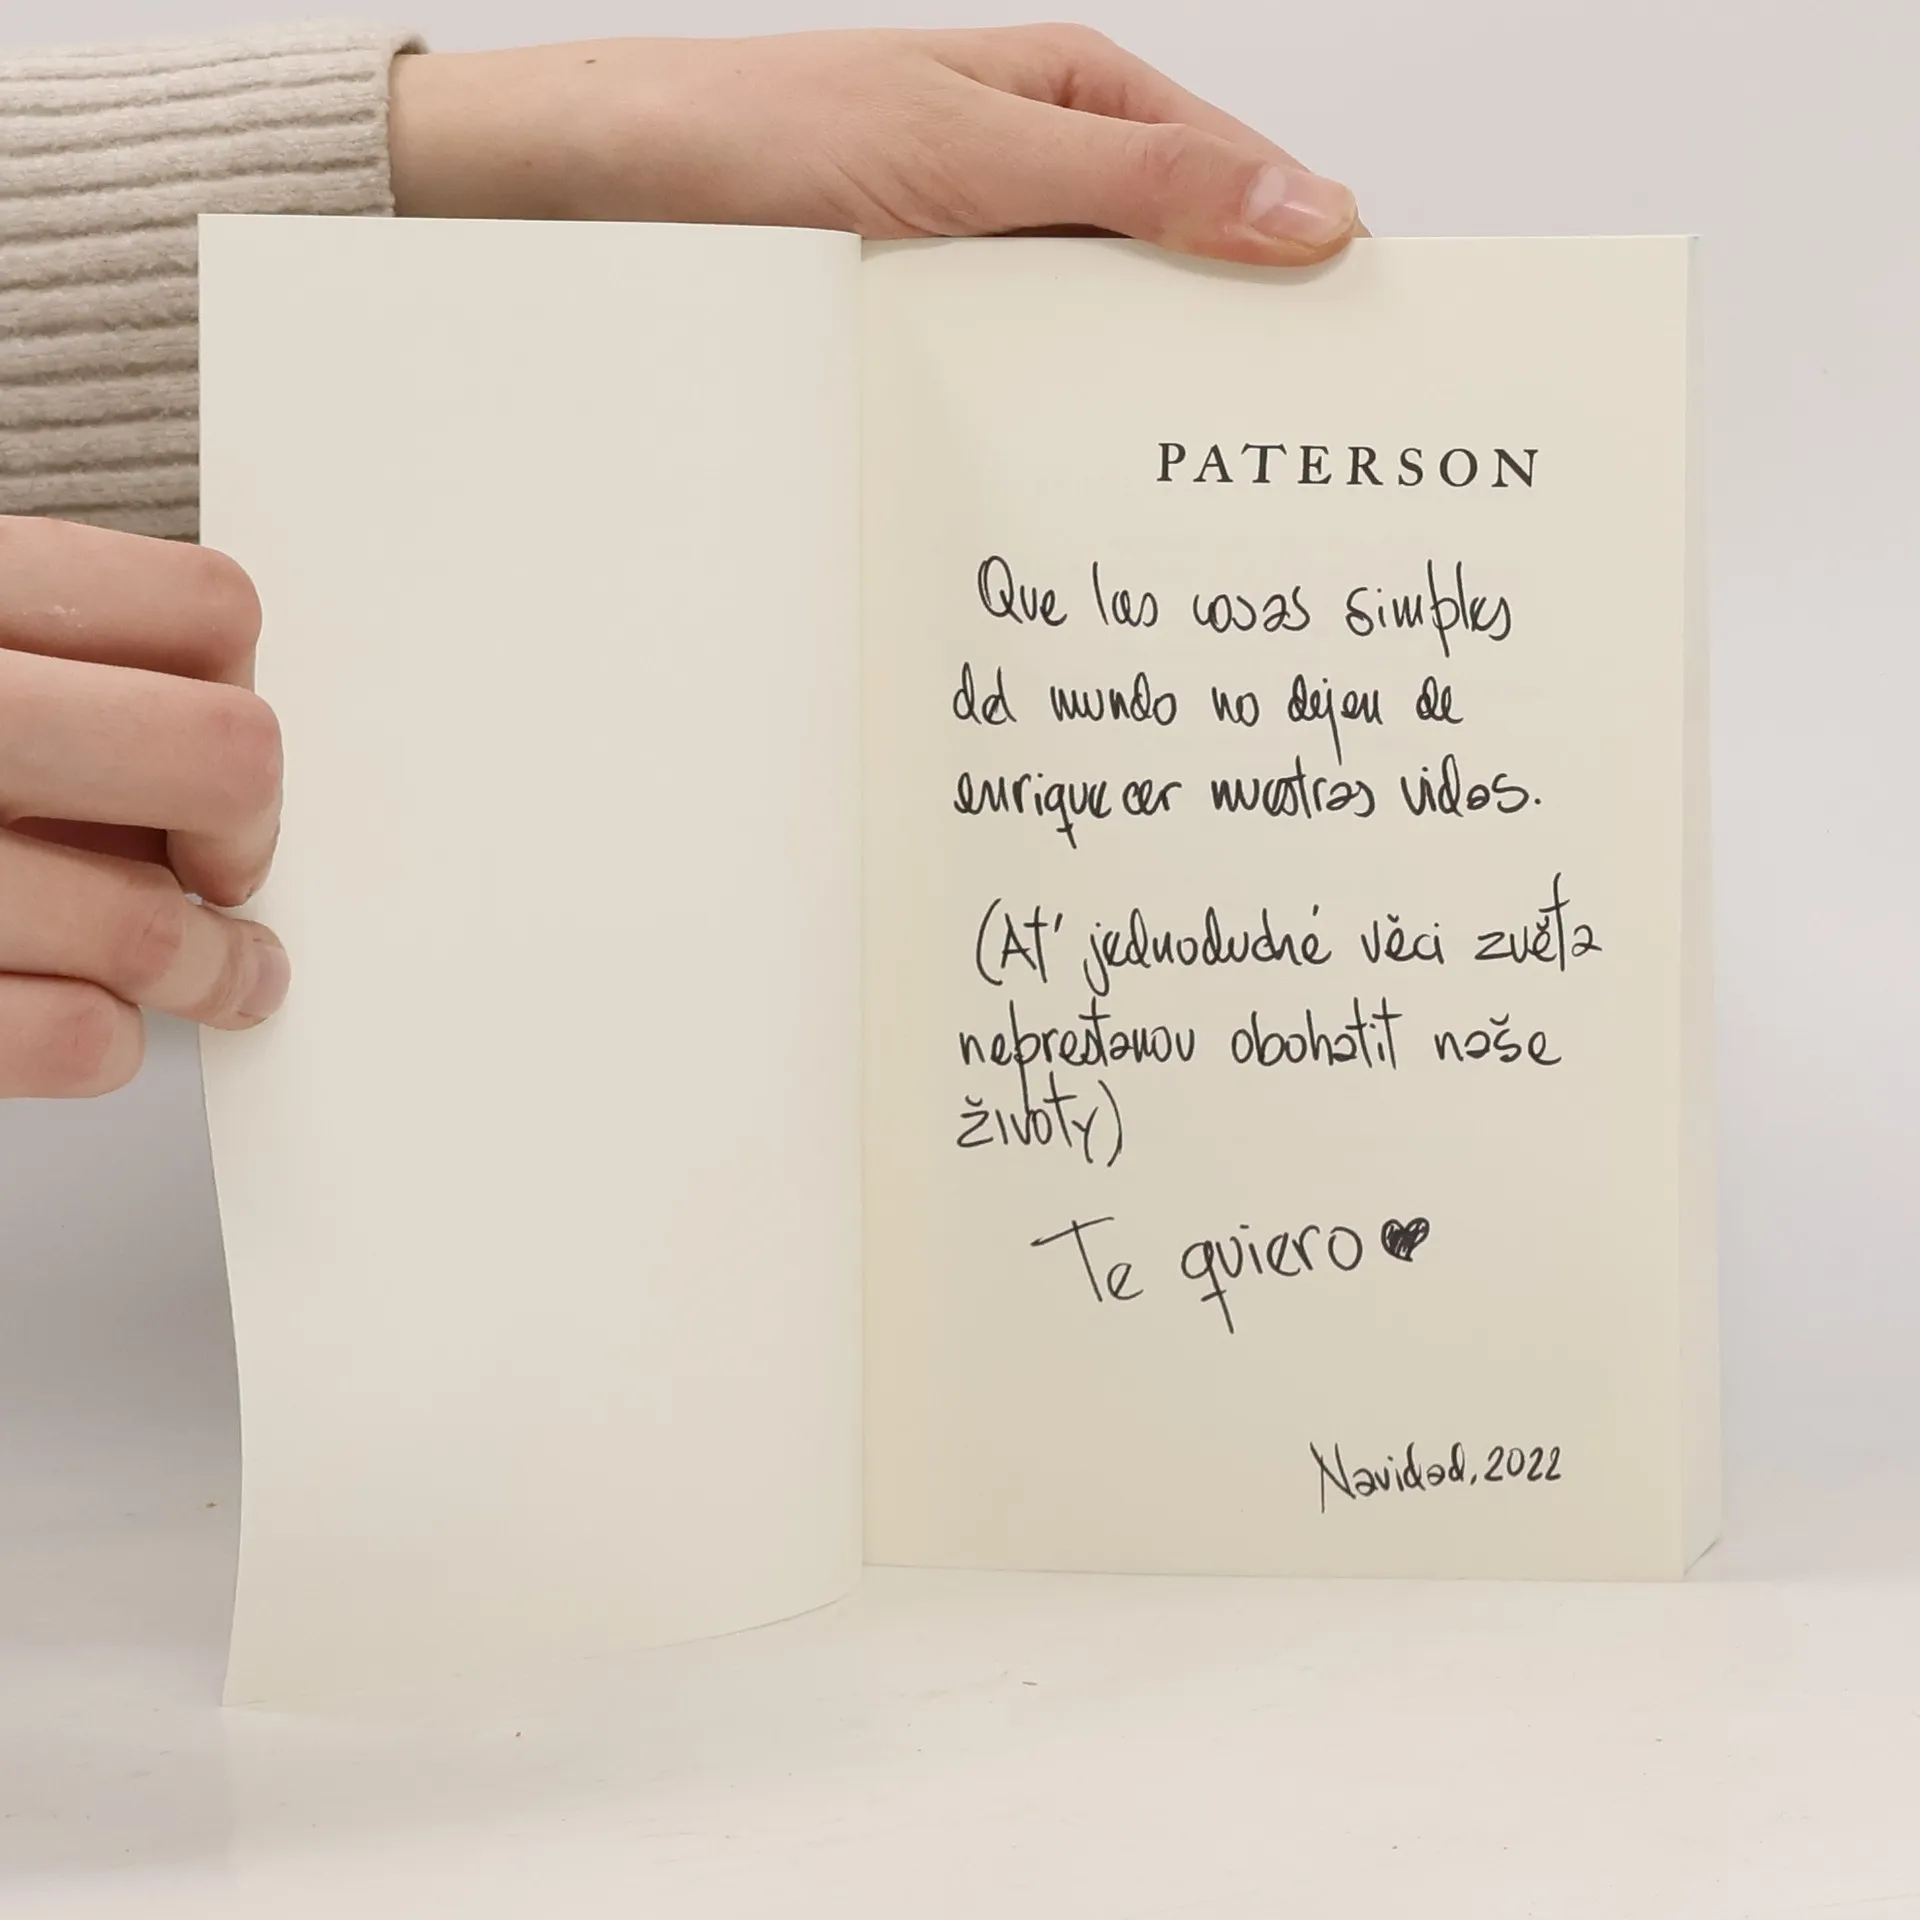 PATERSON
Que las cosas simples
del mundo no dejen de
enriquecer nuestras vidas.
(Ať jednoduché věci zvěta
neprestanou obohatit naše
životy)
Te quiero ♥
Navidad, 2022